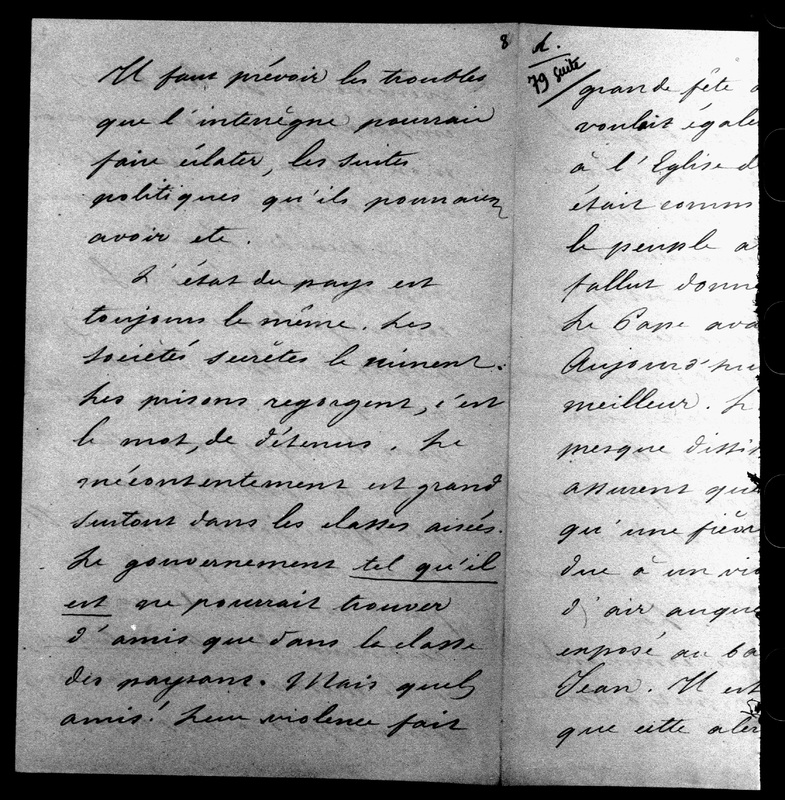 8
Il faut prévoir les troubles
que l'interrègne pourrait
faire éclater, les suites
politiques qu'ils pourraient
avoir etc.
L'état du pays est
toujours le même. Les
sociétés secrètes le minent.
Les prisons regorgent, c'est
le mot, de détenus. Le
mécontentement est grand
surtout dans les classes aisées.
Le gouvernement tel qu'il
est ne pourrait trouver
d'amis que dans la classe
des paysans. Mais quels
amis! Leur violence fait
d.
79 suite
grande fête
voulait égale
à l'Eglise d
était comm
le peuple a
fallut donne
Le Pape ava
Aujourd'hu
meilleur. L
presque dissi
assurent que
qu'une fièv
due à un vio
d'air auque
exposé au ba
Jean. Il est
que cette aler